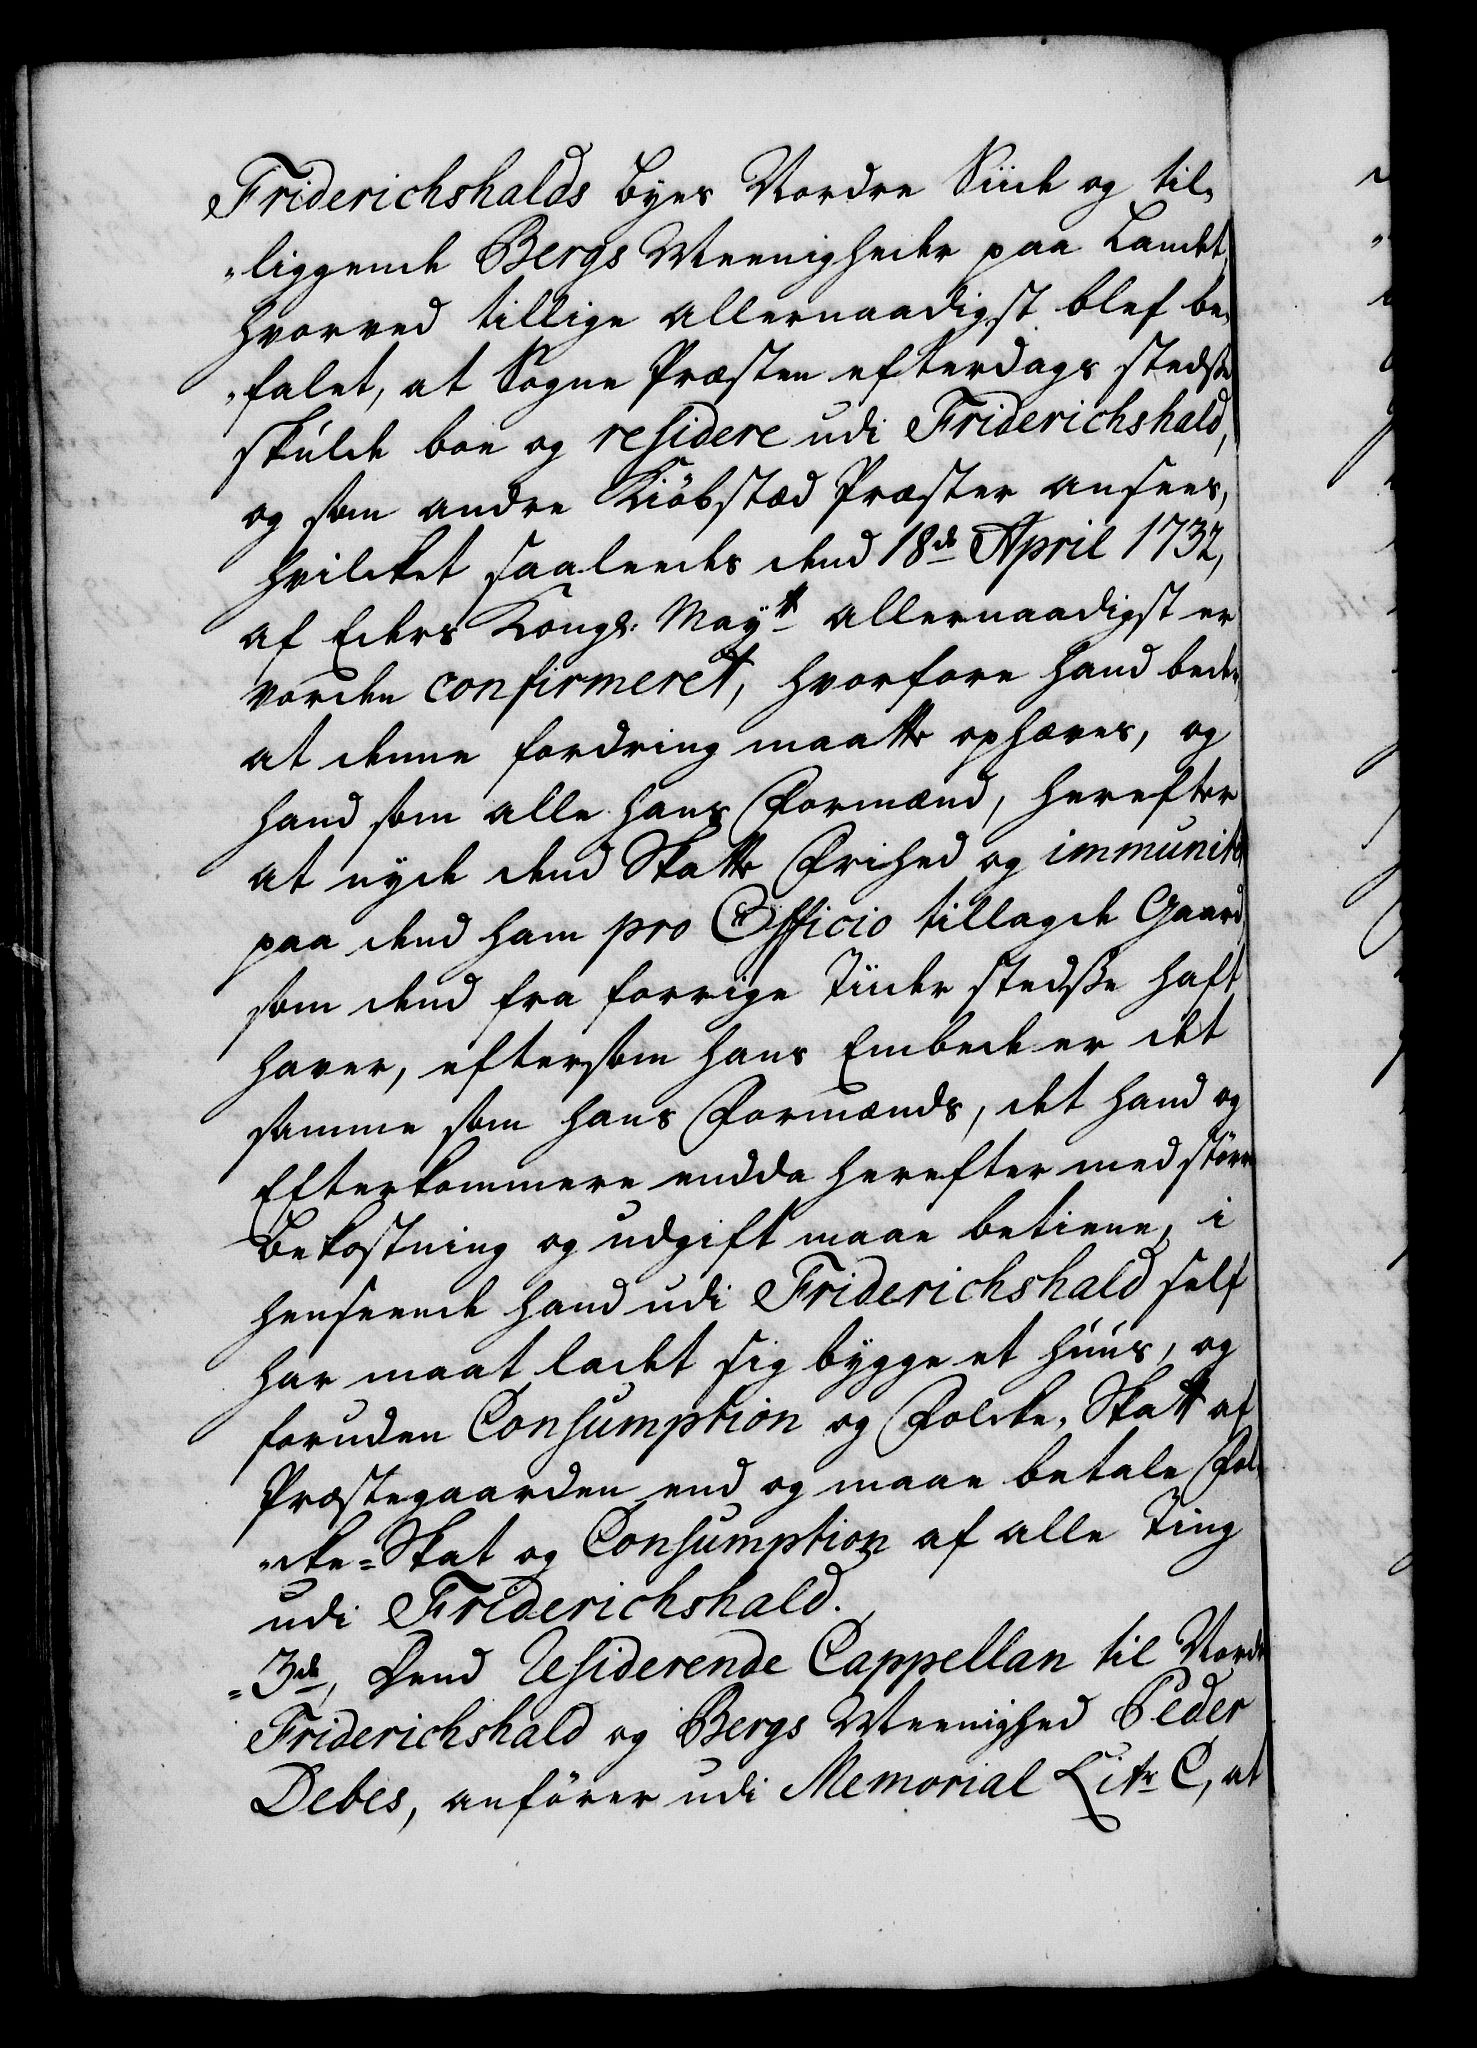 Friderichshalds Byes Nordre Siide og til-
-liggende Bergs Meenigheder paa Landet,
hvorved tillige allernaadigst blef be-
-falet, at Sogne Præsten efterdags stedse
skulde boe og residere udi Friderichshald,
og som andre Kiöbstæd Præster ansees,
hvilcket saaleedes dend 18de April 1732,
af Eders Kongl: Mayt allernaadigst er
vorden confirmeret, hvorfore hand beder
at denne fordring maatte ophæves, og
hand som alle hans Formænd, herefter
at nyde dend Skatte Frihed og immunitet
paa dend ham pro Officio tillagde Gaard,
som dend fra forrige Tiider stedsse haft
haver, eftersom hans Embede er det
samme som hans Formænds, det hand og
Efterkommere endda herefter med större
Bekostning og udgift maae betiene, i
henseende hand udi Friderichshald self
har maat ladet sig bygge et huus, og
foruden Consumption og Folcke-Skatt af
Præstegaarden end og maae betale Fol-
-cke-Skat og Consumption af alle Ting
udi Friderichshald.
-3de, Dend Residerende Cappellan til Nordre
Friderichshald og Bergs Meenighed Peder
Debes, anförer udi Memorial Litr C, at